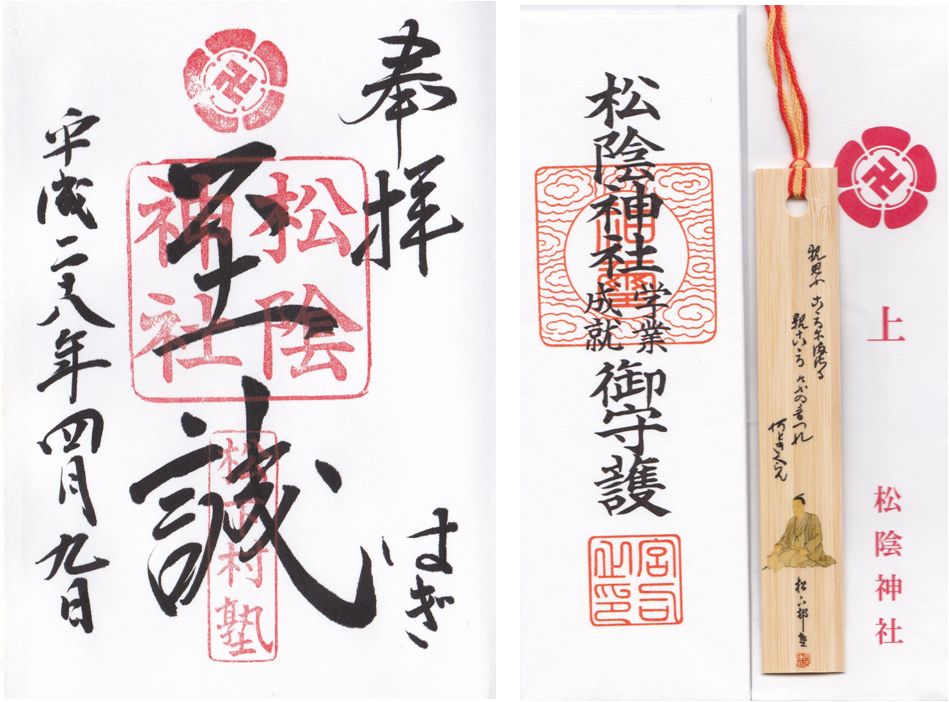 奉拝
はぎ
至誠
松陰
神社
松下村塾
平成二十八年四月九日
松陰神社
学業
成就
御守護
宮司
之印
親思ふ
こゝろにまさる
親こゝろ
けふの音つれ
何ときくらん
松下邨塾
上
松陰神社